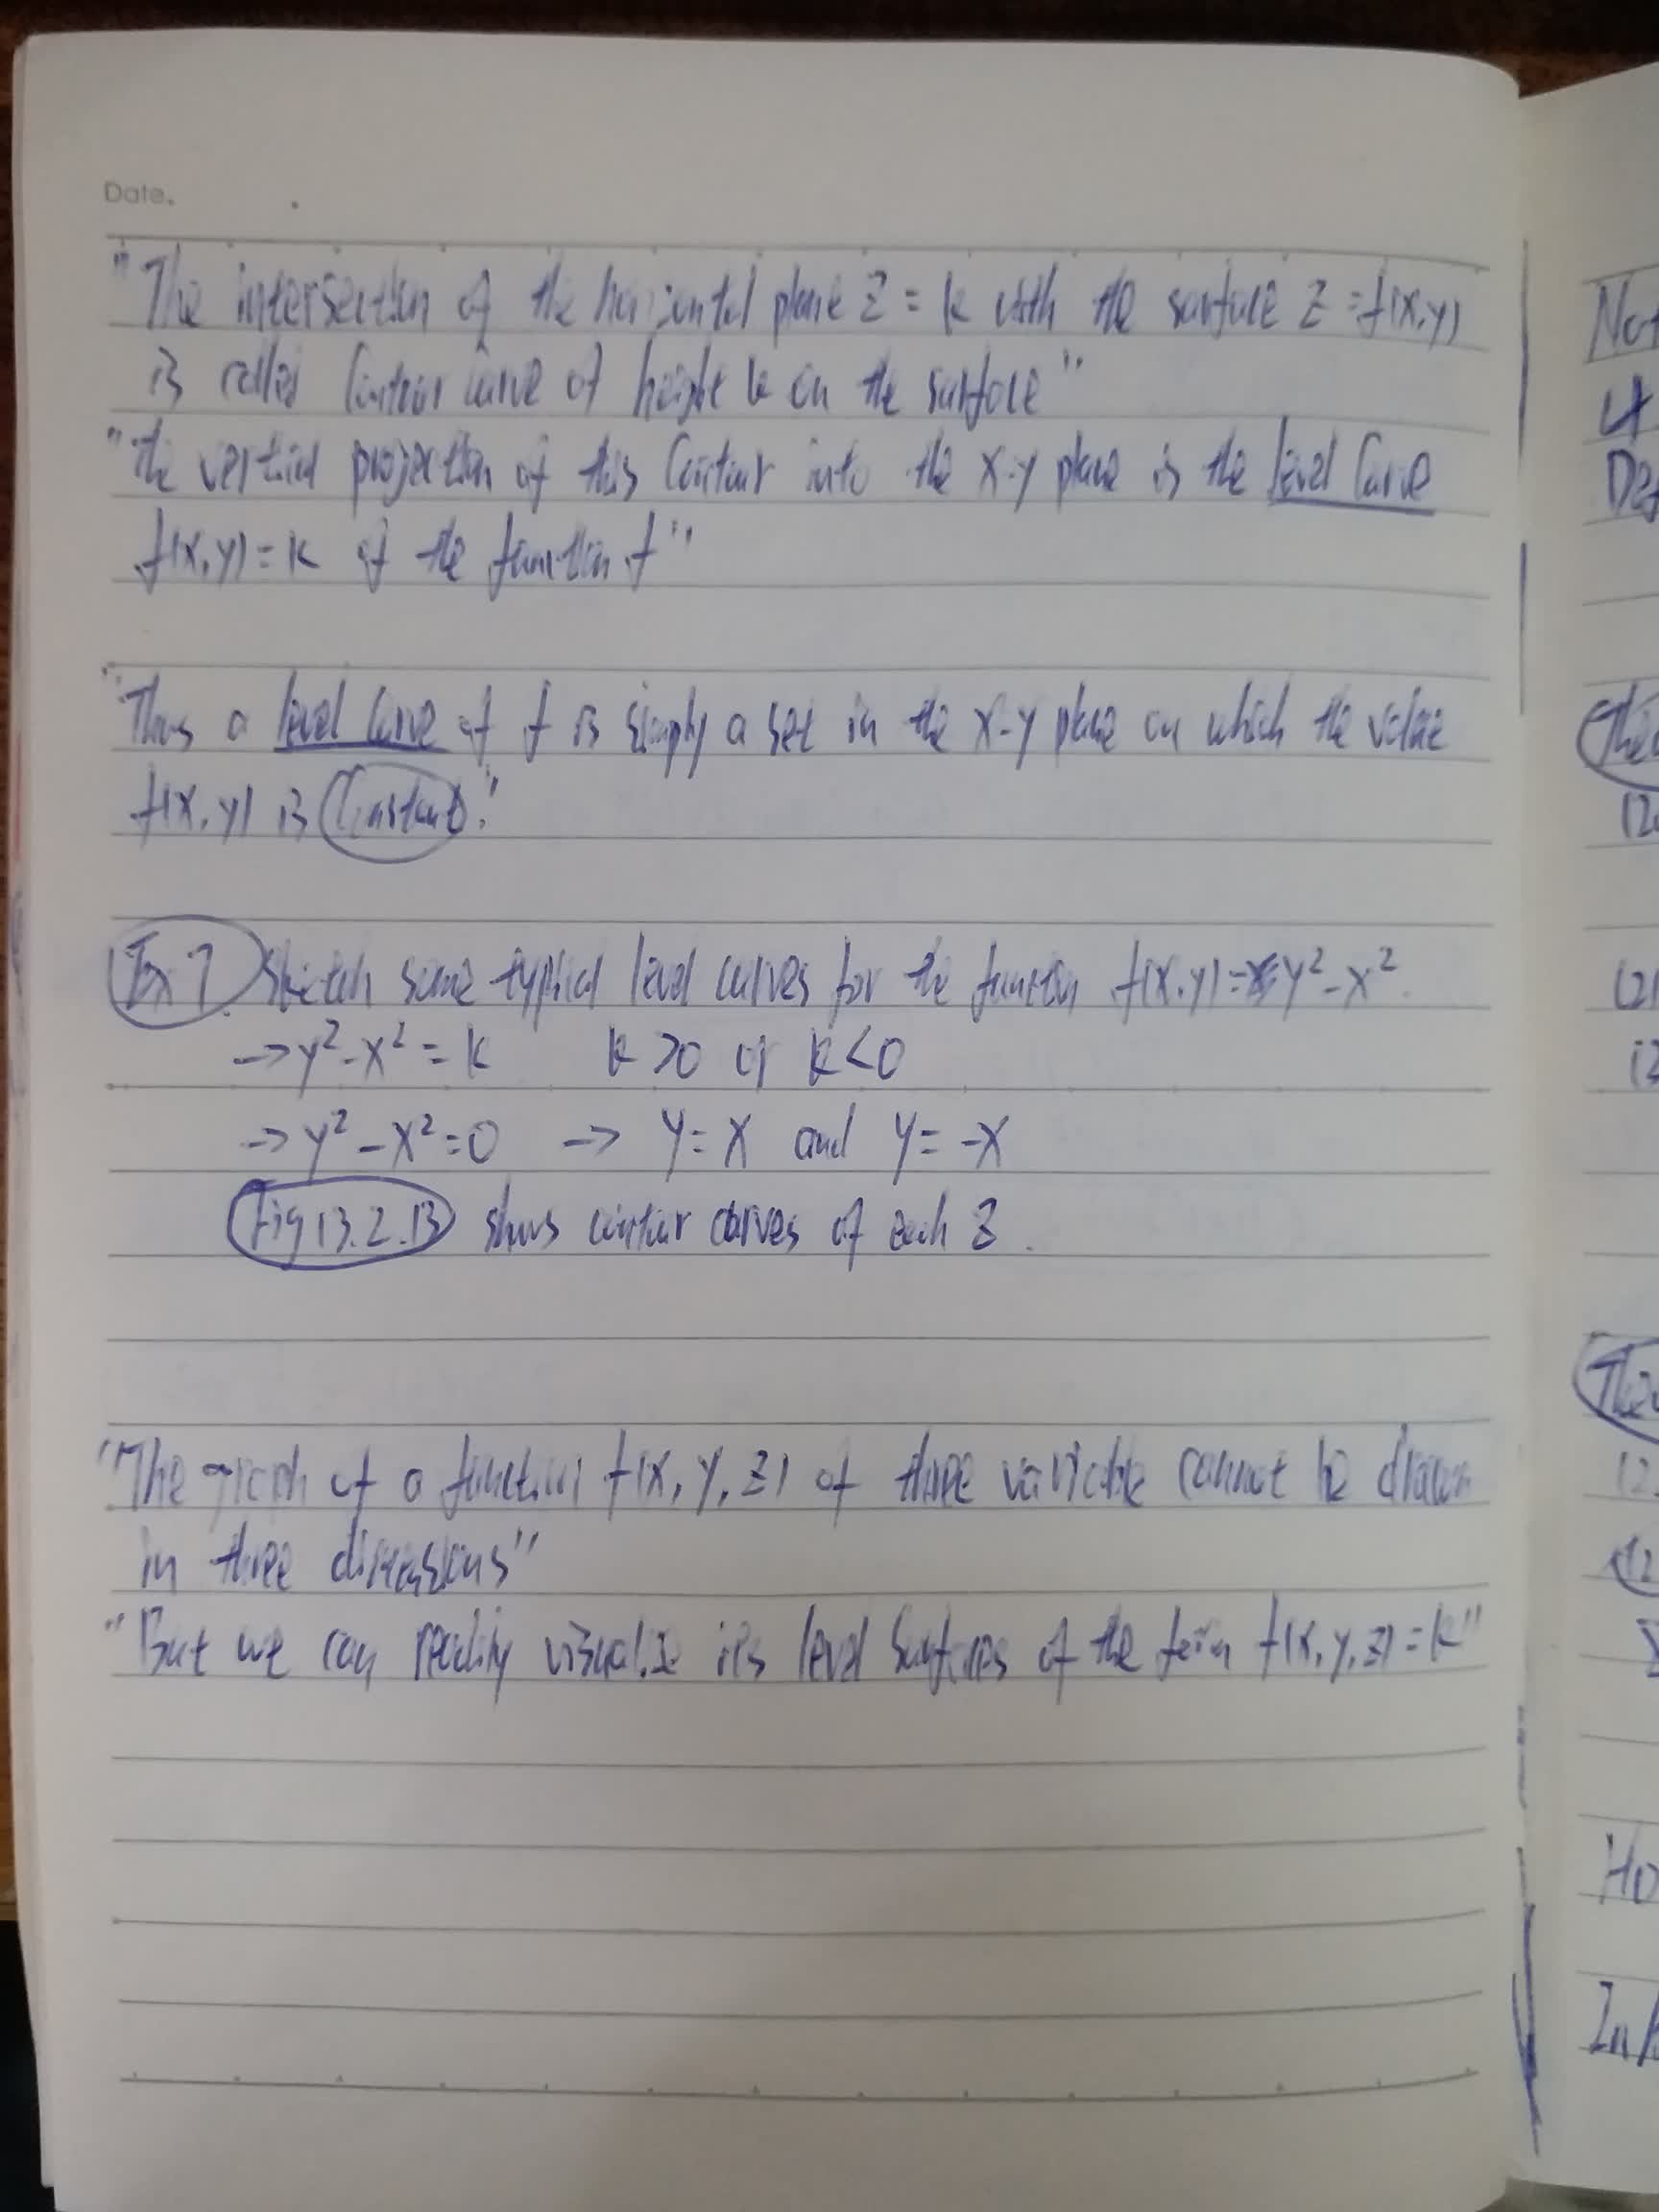 Date.
"The intersection of the horizontal plane Z = k with the surface Z = f(x,y)
is called Contour curve of height k on the surface"
"the vertical projection of this Contour into the x-y plane is the level Curve
f(x,y) = k of the function f"
"Thus a level Curve of f is simply a set in the x-y plane on which the value
f(x,y) is Constant."
Ex 7. Sketch some typical level curves for the function f(x,y) = y² - x².
→ y² - x² = k k > 0 or k < 0
→ y² - x² = 0 → y = x and y = -x
Fig 13.2.13 shows contour curves of each Z.
"The graph of a function f(x, y, z) of three variable cannot be drawn
in three dimensions"
"But we can readily visualize its level surfaces of the form f(x, y, z) = k"
Not
(2)
Ho